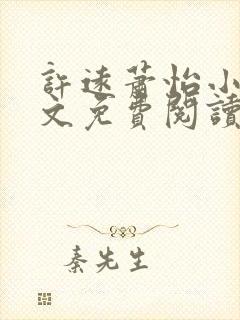 許遠蕭怡小
文免費閱讀
秦先生